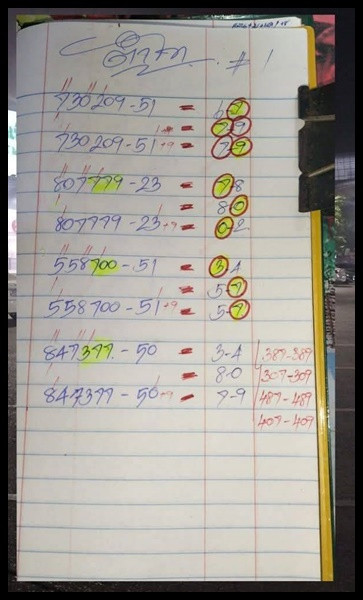 # 1
730209-51 = 6 7
= 7 9
730209-51+9 = 7 9
807779-23 = 7-8
= 8 0
807779-23+9 = 0 2
558700-51 = 3 4
= 5-7
558700-51+9 = 5-7
847377-50 = 3-4 387-389
= 8-0 307-309
847377-50+9 = 7-9 487-489
407-409